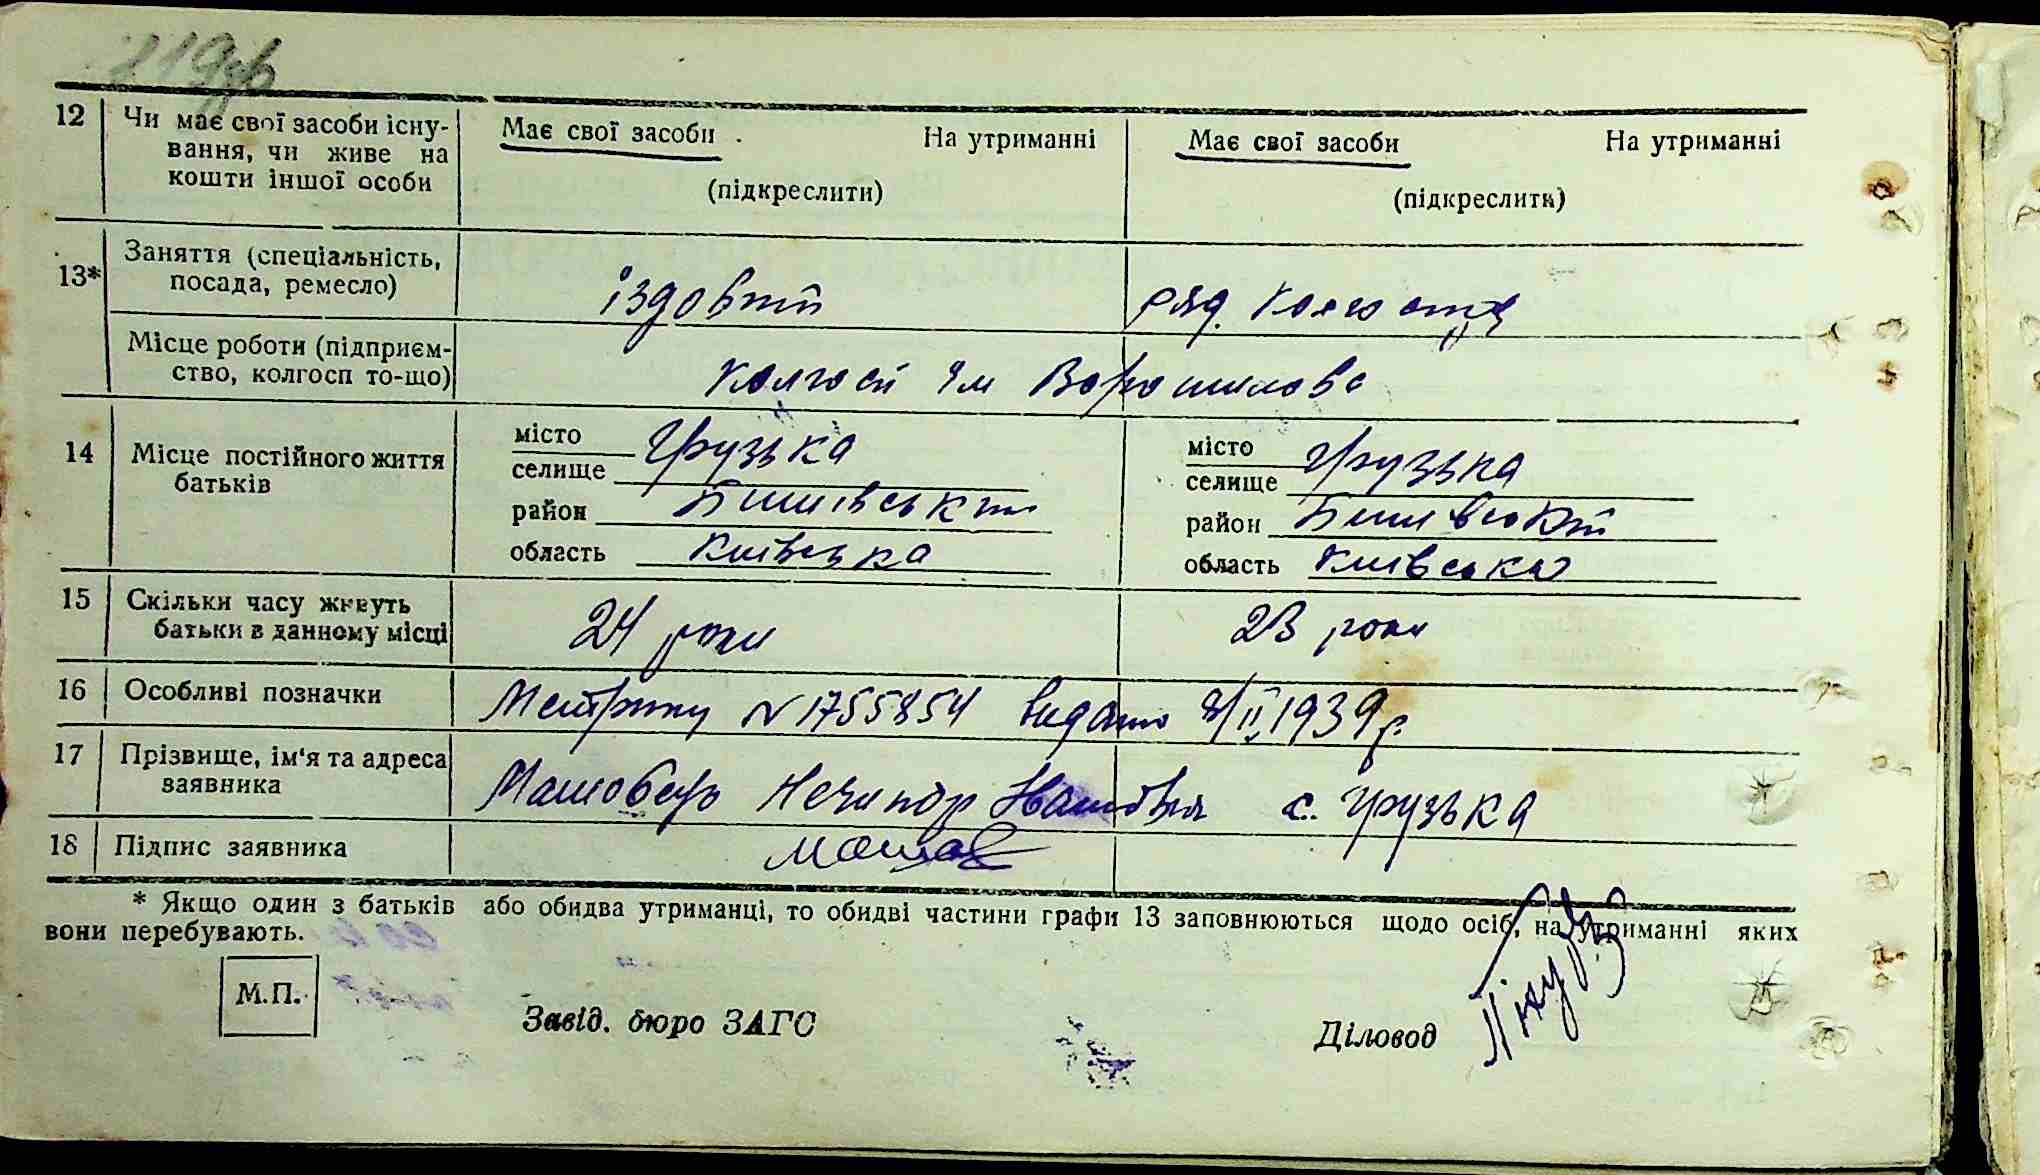 219зв
12 Чи має свої засоби існу-
вання, чи живе на
кошти іншої особи
Має свої засоби На утриманні
(підкреслити)
Має свої засоби На утриманні
(підкреслити)
13* Заняття (спеціальність,
посада, ремесло)
їздовий
ряд. колгоспу
Місце роботи (підприєм-
ство, колгосп то-що)
Колгосп Ім Ворошилова
14 Місце постійного життя
батьків
місто
селище Грузька
район Бишівський
область Київська
місто
селище Грузька
район Бишівський
область Київська
15 Скільки часу живуть
батьки в данному місці
24 роки
23 роки
16 Особливі позначки
Метрику N 1755854 видано 8/II 1939 р.
17 Прізвище, ім'я та адреса
заявника
Машовець Нечипор Іванович с. Грузька
18 Підпис заявника
* Якщо один з батьків або обидва утриманці, то обидві частини графи 13 заповнюються щодо осіб, на утриманні яких
вони перебувають.
М.П.
Завід. бюро ЗАГС
Діловод